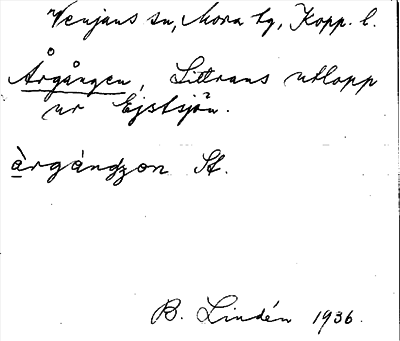 Venjans sn, Mora tg, Kopp. l.
Årgången, Littrans utlopp
ur Ejstsjön.
àrgánʒon St.
B. Lindén 1936.